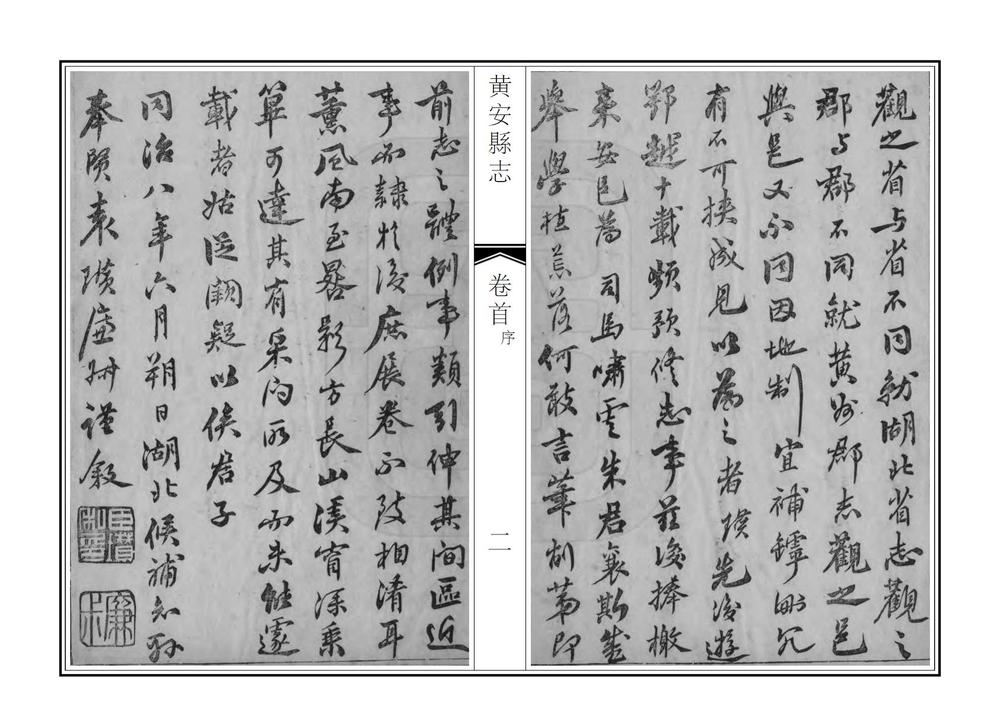 觀之省与省不同就湖北省志觀之
郡与郡不同就黄州郡志觀之邑
與邑又不同因地制宜補罅刪冗
有不可挾成見以爲之者瓚先後遊
鄂越十載頻預修志事茲復捧檄
來安邑爲司馬嘯雲朱君襄斯盛
舉學植荒落何敢言筆削第即
黄安縣志
卷首
序
二
前志之體例事類引伸其間區近
事而隸於後庶展卷不致相淆耳
薰風南至晷影方長山溪窅深乘
箄可達其有采訪所及而未能遽
載者姑從闕疑以俟君子
同治八年六月朔日湖北候補知縣
奉賢袁瓚廉叔謹敘